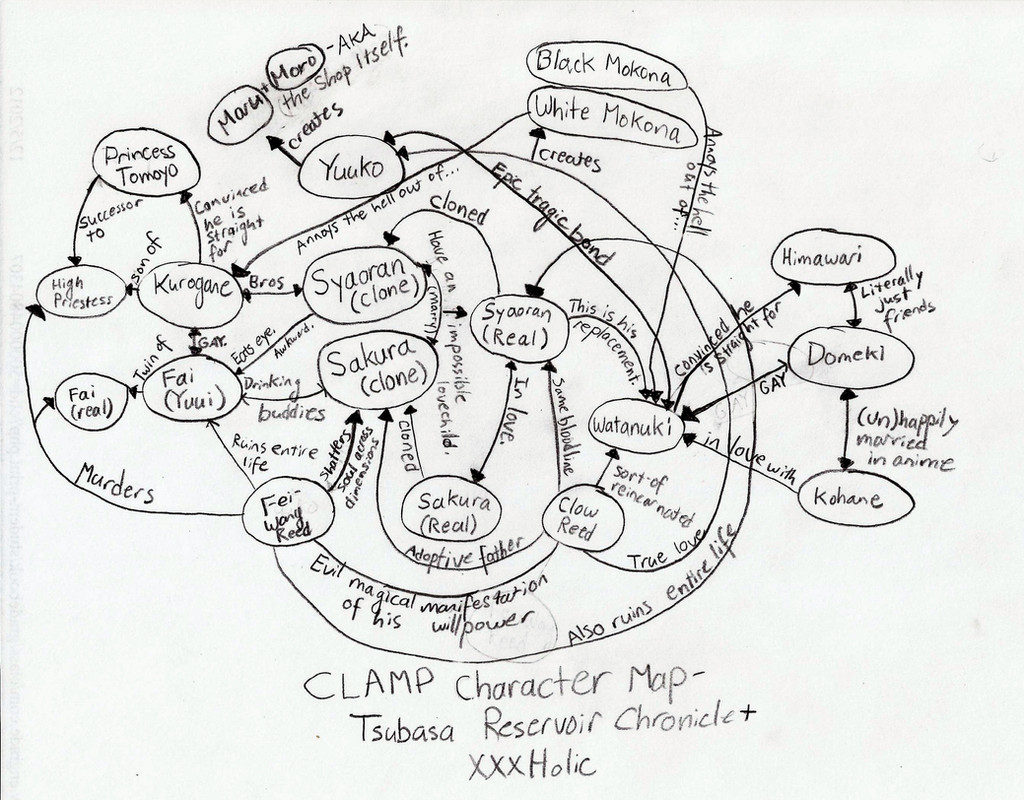 Maru + Moro - AKA
the Shop Itself.
creates
Yuuko
Black Mokona
White Mokona
creates
Annoys the hell
out of...
Princess
Tomoyo
Successor
to
Convinced
he is
straight
for
Annoys the hell out of...
Epic tragic bond
cloned
High
Priestess
son of
Kurogane
Bros
Syaoran
(clone)
Have an impossible lovechild.
(marry)
Syaoran
(Real)
This is his
replacement.
convinced he
is straight for
Himawari
Literally
just
friends
Domeki
GAY
GAY.
Eats eye.
Awkward.
Sakura
(clone)
Fai
(real)
Twin of
Fai
(Yuui)
Drinking
buddies
In love.
Same bloodline
Watanuki
in love with
(un)happily
married
in anime
Kohane
Murders
Ruins entire
life
shatters
soul across
dimensions
cloned
Sakura
(Real)
Clow
Reed
sort of
reincarnated
Fei-
Wang
Reed
Adoptive father
True love
Evil magical manifestation
of his willpower
Also ruins entire life
CLAMP Character Map-
Tsubasa Reservoir Chronicle +
XXXHolic